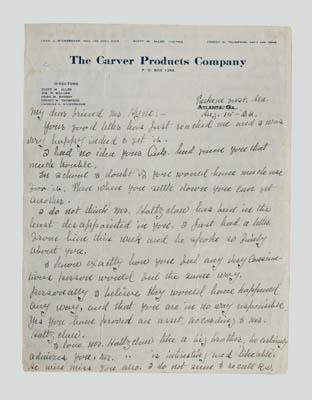 The Carver Products Company
P. O. BOX 1264
DIRECTORS
ATLANTA, GA.
Aug. 15-24.
my dear friend Mr.
Your good letter has just reached me and I was
very happy indeed to get it.
I had no idea your had given you that
much trouble.
In school I doubt if you would have much use
for it. Then when you settle down you can get
another.
I do not think Mr. Holtzclaw has been in the
least disappointed in you. I just had a letter
from him this week and he spoke so finely
about you.
I know exactly how you feel any
person would feel the same way.
Personally I believe they would have happened
any way, and that you are in no way responsible
Yes you have proved an asset, according to Mr.
Holtzclaw.
I love Mr. Holtzclaw like a big brother, he certainly
admires you, Mr. " is interesting and likeable.
He will miss you also. I do not seem to recall Rev.